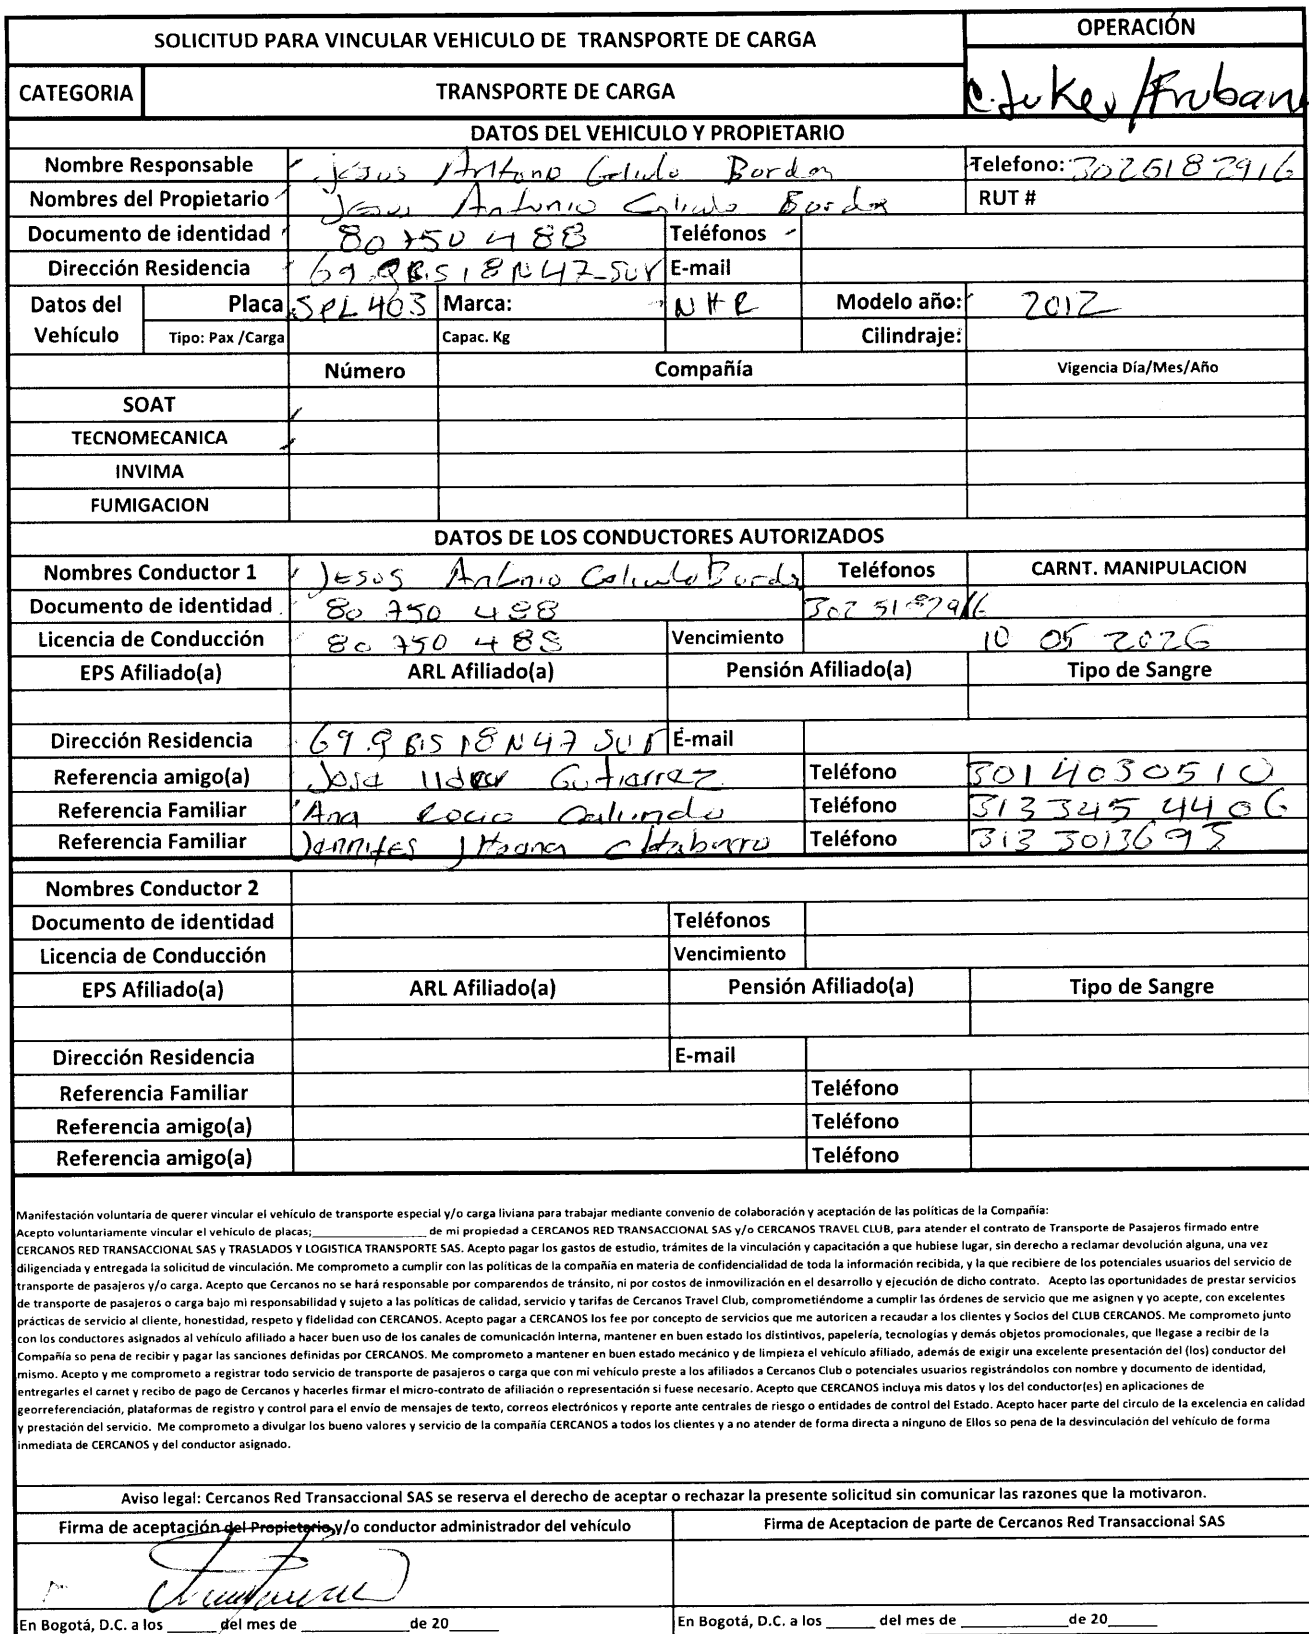 SOLICITUD PARA VINCULAR VEHICULO DE TRANSPORTE DE CARGA
OPERACIÓN
CATEGORIA
TRANSPORTE DE CARGA
C. Luker / Fruban
DATOS DEL VEHICULO Y PROPIETARIO
Nombre Responsable Jesus Antono Galindo Borda Telefono: 3025182916
Nombres del Propietario Jesus Antonio Galindo Borda RUT #
Documento de identidad 80 750 488 Teléfonos
Dirección Residencia 69.9 BIS 18 N 47 SUR E-mail
Datos del Vehículo Placa SPL 403 Marca: NHR Modelo año: 2012
Tipo: Pax /Carga Capac. Kg Cilindraje:
Número Compañía Vigencia Día/Mes/Año
SOAT
TECNOMECANICA
INVIMA
FUMIGACION
DATOS DE LOS CONDUCTORES AUTORIZADOS
Nombres Conductor 1 Jesus Antonio Galindo Borda Teléfonos CARNT. MANIPULACION
Documento de identidad 80 750 488 302 5182916
Licencia de Conducción 80 750 488 Vencimiento 10 05 2026
EPS Afiliado(a) ARL Afiliado(a) Pensión Afiliado(a) Tipo de Sangre
Dirección Residencia 69.9 BIS 18 N 47 SUR E-mail
Referencia amigo(a) José Gutiarrez Teléfono 3014030510
Referencia Familiar Ana Rocio Galindo Teléfono 313 345 4406
Referencia Familiar Jennifer Teléfono 313 3013693
Nombres Conductor 2
Documento de identidad Teléfonos
Licencia de Conducción Vencimiento
EPS Afiliado(a) ARL Afiliado(a) Pensión Afiliado(a) Tipo de Sangre
Dirección Residencia E-mail
Referencia Familiar Teléfono
Referencia amigo(a) Teléfono
Referencia amigo(a) Teléfono
Manifestación voluntaria de querer vincular el vehículo de transporte especial y/o carga liviana para trabajar mediante convenio de colaboración y aceptación de las políticas de la Compañía:
Acepto voluntariamente vincular el vehículo de placas;____________________ de mi propiedad a CERCANOS RED TRANSACCIONAL SAS y/o CERCANOS TRAVEL CLUB, para atender el contrato de Transporte de Pasajeros firmado entre
CERCANOS RED TRANSACCIONAL SAS y TRASLADOS Y LOGISTICA TRANSPORTE SAS. Acepto pagar los gastos de estudio, trámites de la vinculación y capacitación a que hubiese lugar, sin derecho a reclamar devolución alguna, una vez
diligenciada y entregada la solicitud de vinculación. Me comprometo a cumplir con las políticas de la compañía en materia de confidencialidad de toda la información recibida, y la que recibiere de los potenciales usuarios del servicio de
transporte de pasajeros y/o carga. Acepto que Cercanos no se hará responsable por comparendos de tránsito, ni por costos de inmovilización en el desarrollo y ejecución de dicho contrato. Acepto las oportunidades de prestar servicios
de transporte de pasajeros o carga bajo mi responsabilidad y sujeto a las políticas de calidad, servicio y tarifas de Cercanos Travel Club, comprometiéndome a cumplir las órdenes de servicio que me asignen y yo acepte, con excelentes
prácticas de servicio al cliente, honestidad, respeto y fidelidad con CERCANOS. Acepto pagar a CERCANOS los fee por concepto de servicios que me autoricen a recaudar a los clientes y Socios del CLUB CERCANOS. Me comprometo junto
con los conductores asignados al vehículo afiliado a hacer buen uso de los canales de comunicación interna, mantener en buen estado los distintivos, papelería, tecnologías y demás objetos promocionales, que llegase a recibir de la
Compañía so pena de recibir y pagar las sanciones definidas por CERCANOS. Me comprometo a mantener en buen estado mecánico y de limpieza el vehículo afiliado, además de exigir una excelente presentación del (los) conductor del
mismo. Acepto y me comprometo a registrar todo servicio de transporte de pasajeros o carga que con mi vehículo preste a los afiliados a Cercanos Club o potenciales usuarios registrándolos con nombre y documento de identidad,
entregarles el carnet y recibo de pago de Cercanos y hacerles firmar el micro-contrato de afiliación o representación si fuese necesario. Acepto que CERCANOS incluya mis datos y los del conductor(es) en aplicaciones de
georreferenciación, plataformas de registro y control para el envío de mensajes de texto, correos electrónicos y reporte ante centrales de riesgo o entidades de control del Estado. Acepto hacer parte del circulo de la excelencia en calidad
y prestación del servicio. Me comprometo a divulgar los bueno valores y servicio de la compañía CERCANOS a todos los clientes y a no atender de forma directa a ninguno de Ellos so pena de la desvinculación del vehículo de forma
inmediata de CERCANOS y del conductor asignado.
Aviso legal: Cercanos Red Transaccional SAS se reserva el derecho de aceptar o rechazar la presente solicitud sin comunicar las razones que la motivaron.
Firma de aceptación del Propietario y/o conductor administrador del vehículo Firma de Aceptacion de parte de Cercanos Red Transaccional SAS
En Bogotá, D.C. a los ______ del mes de _____________ de 20______ En Bogotá, D.C. a los ______ del mes de _____________ de 20______